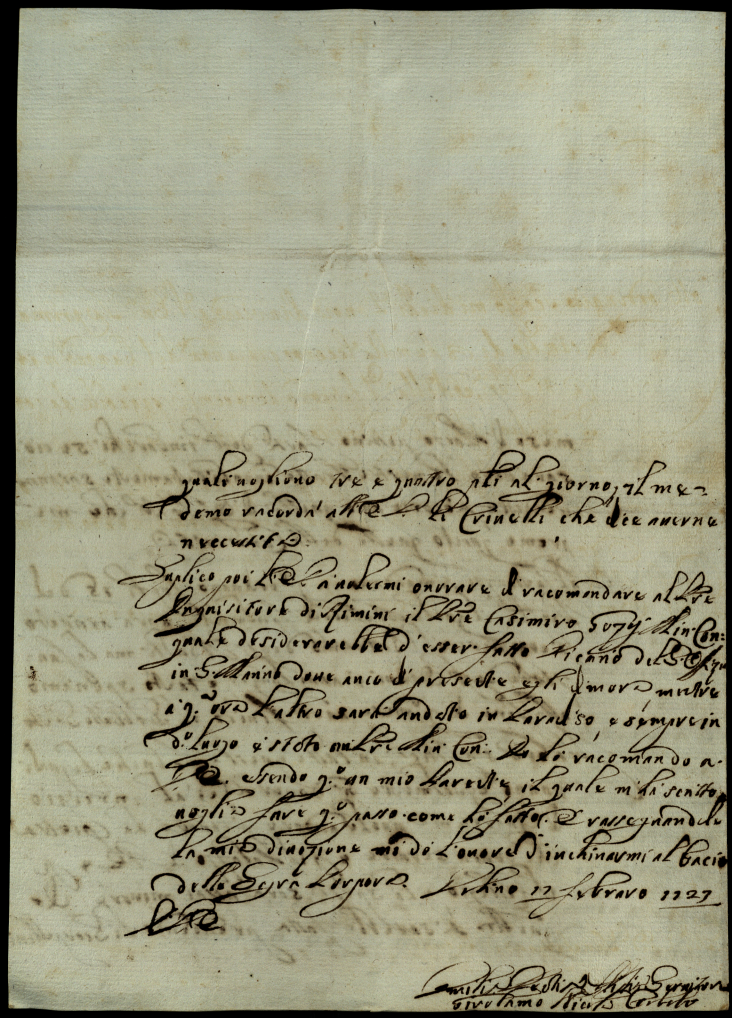 quali vogliono tre e quatro pli al giorno, il me=
demo racorda all P. Crinelli che dee averne
necessità
Suplico poi P. a volermi onorare di racomandare al Pre
Inquisitore di Rimini il Pre Casimiro Min: Con:
quale desiderarebbe d'esser fatto Vicario del S.
in S. dove anco di presente egli dimora mentre
a q. ora l'altro sarà andato in Paradiso, e sempre in
do luogo è stato un Pre Min: Con: Io lo racomando a
essendo qo un mio Parente, il quale m'ha scritto
voglia fare qo passo come ho fatto. E rassegnandole
la mia divozione mi dò l'onore d'inchinarmi al bacio
della Sagra Porpora. Urbino 12 febraro 1727
Umilis Servitore
Girolamo Nicolò